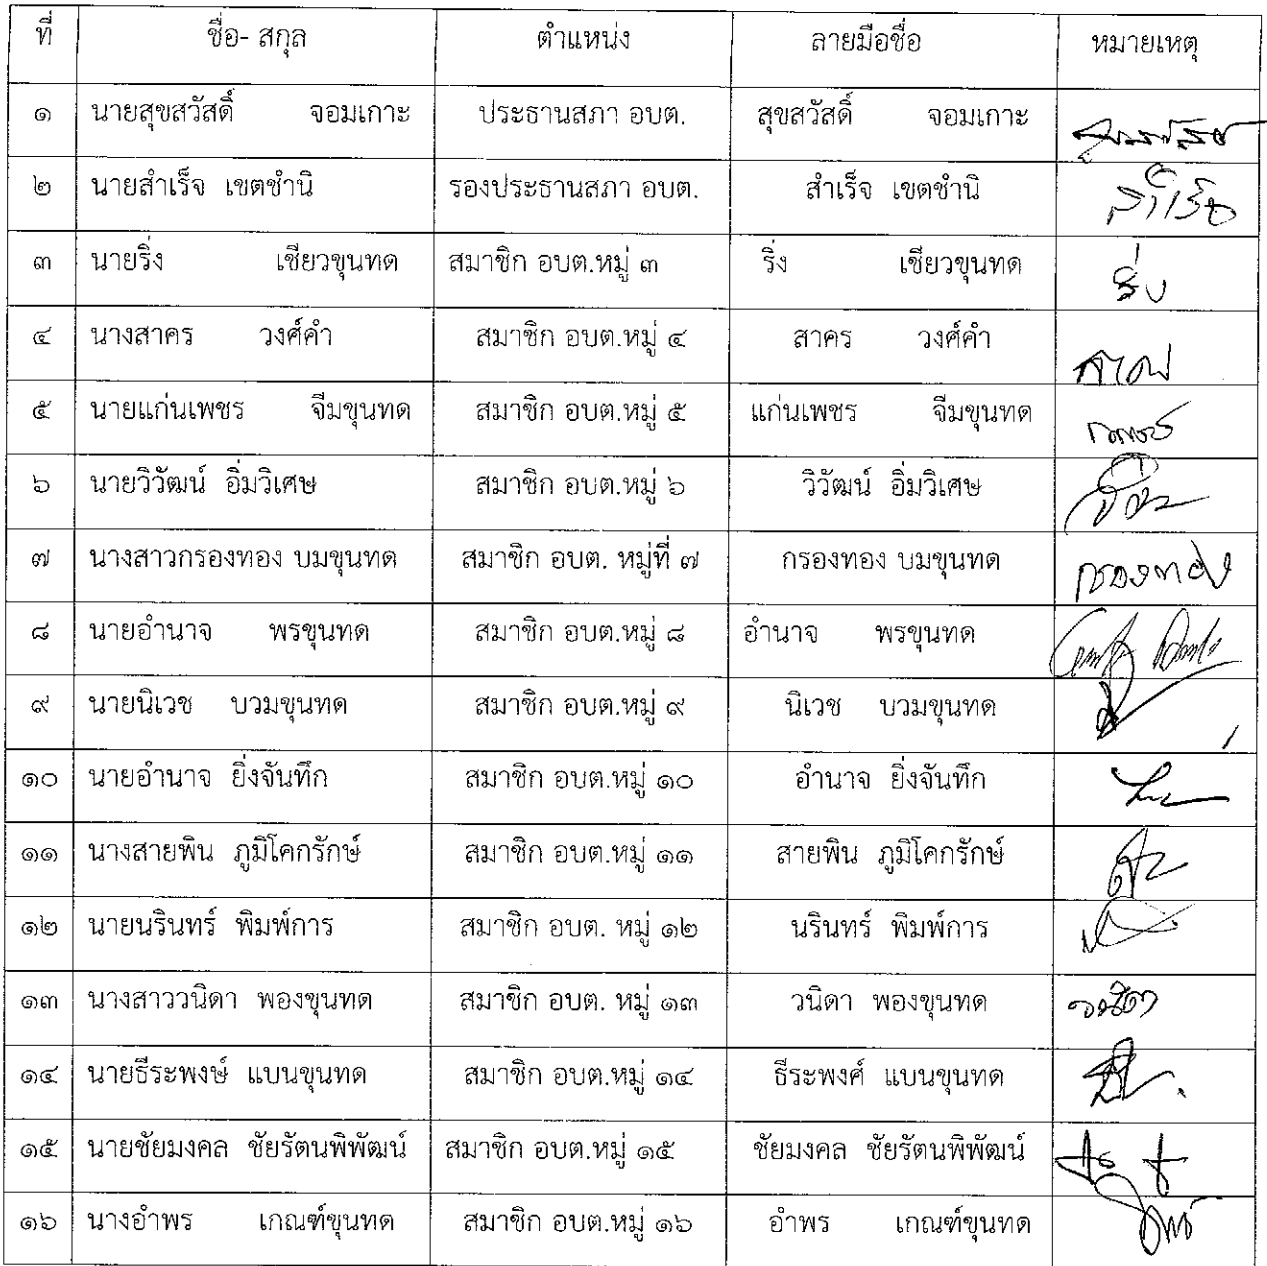 ที่ ชื่อ- สกุล ตำแหน่ง ลายมือชื่อ หมายเหตุ
๑ นายสุขสวัสดิ์ จอมเกาะ ประธานสภา อบต. สุขสวัสดิ์ จอมเกาะ
๒ นายสำเร็จ เขตชำนิ รองประธานสภา อบต. สำเร็จ เขตชำนิ สำเร็จ
๓ นายริ่ง เชียวขุนทด สมาชิก อบต.หมู่ ๓ ริ่ง เชียวขุนทด ริ่ง
๔ นางสาคร วงศ์คำ สมาชิก อบต.หมู่ ๔ สาคร วงศ์คำ
๕ นายแก่นเพชร จีมขุนทด สมาชิก อบต.หมู่ ๕ แก่นเพชร จีมขุนทด
๖ นายวิวัฒน์ อิ่มวิเศษ สมาชิก อบต.หมู่ ๖ วิวัฒน์ อิ่มวิเศษ
๗ นางสาวกรองทอง บมขุนทด สมาชิก อบต. หมู่ที่ ๗ กรองทอง บมขุนทด กรองทอง
๘ นายอำนาจ พรขุนทด สมาชิก อบต.หมู่ ๘ อำนาจ พรขุนทด
๙ นายนิเวช บวมขุนทด สมาชิก อบต.หมู่ ๙ นิเวช บวมขุนทด
๑๐ นายอำนาจ ยิ่งจันทึก สมาชิก อบต.หมู่ ๑๐ อำนาจ ยิ่งจันทึก
๑๑ นางสายพิน ภูมิโคกรักษ์ สมาชิก อบต.หมู่ ๑๑ สายพิน ภูมิโคกรักษ์
๑๒ นายนรินทร์ พิมพ์การ สมาชิก อบต. หมู่ ๑๒ นรินทร์ พิมพ์การ
๑๓ นางสาววนิดา พองขุนทด สมาชิก อบต. หมู่ ๑๓ วนิดา พองขุนทด วนิดา
๑๔ นายธีระพงษ์ แบนขุนทด สมาชิก อบต.หมู่ ๑๔ ธีระพงศ์ แบนขุนทด
๑๕ นายชัยมงคล ชัยรัตนพิพัฒน์ สมาชิก อบต.หมู่ ๑๕ ชัยมงคล ชัยรัตนพิพัฒน์
๑๖ นางอำพร เกณฑ์ขุนทด สมาชิก อบต.หมู่ ๑๖ อำพร เกณฑ์ขุนทด